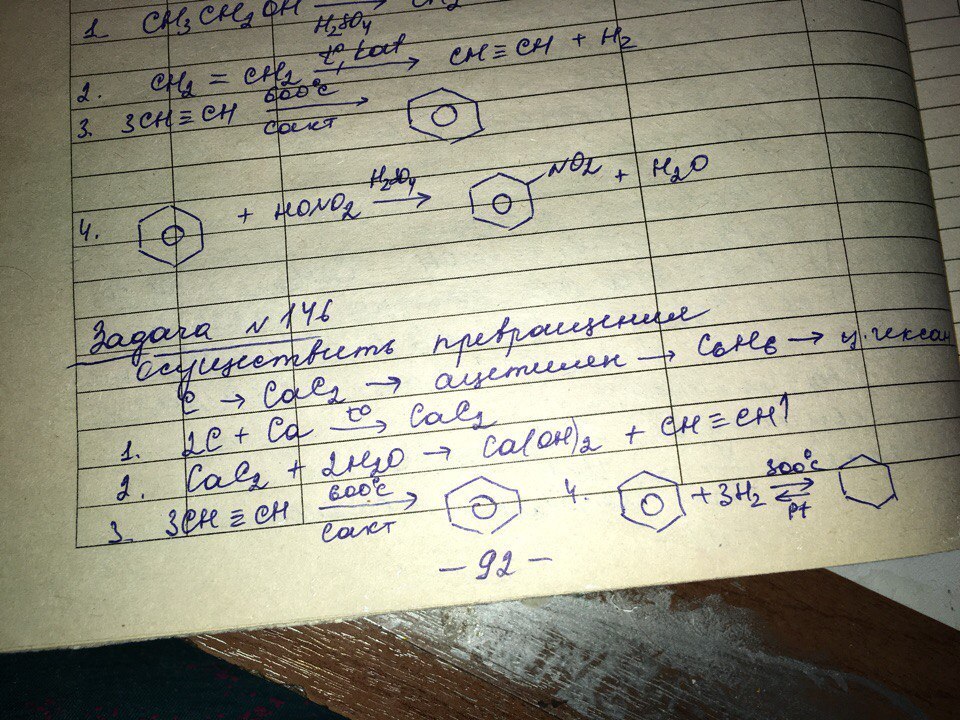 1. CH3CH2OH → CH2
H2SO4
2. CH2 = CH2 t°, kat → CH≡CH + H2
3. 3CH≡CH 600°C → Cакт
4. + HONO2 H2SO4 → NO2 + H2O
Задача №146
осуществить превращения
C → CaC2 → ацетилен → C6H6 → ц.гексан
1. 2C + Ca t° → CaC2
2. CaC2 + 2H2O → Ca(OH)2 + CH≡CH↑
3. 3CH≡CH 600°C → Cакт 4. + 3H2 300°C ⇄ Pt
— 92 —